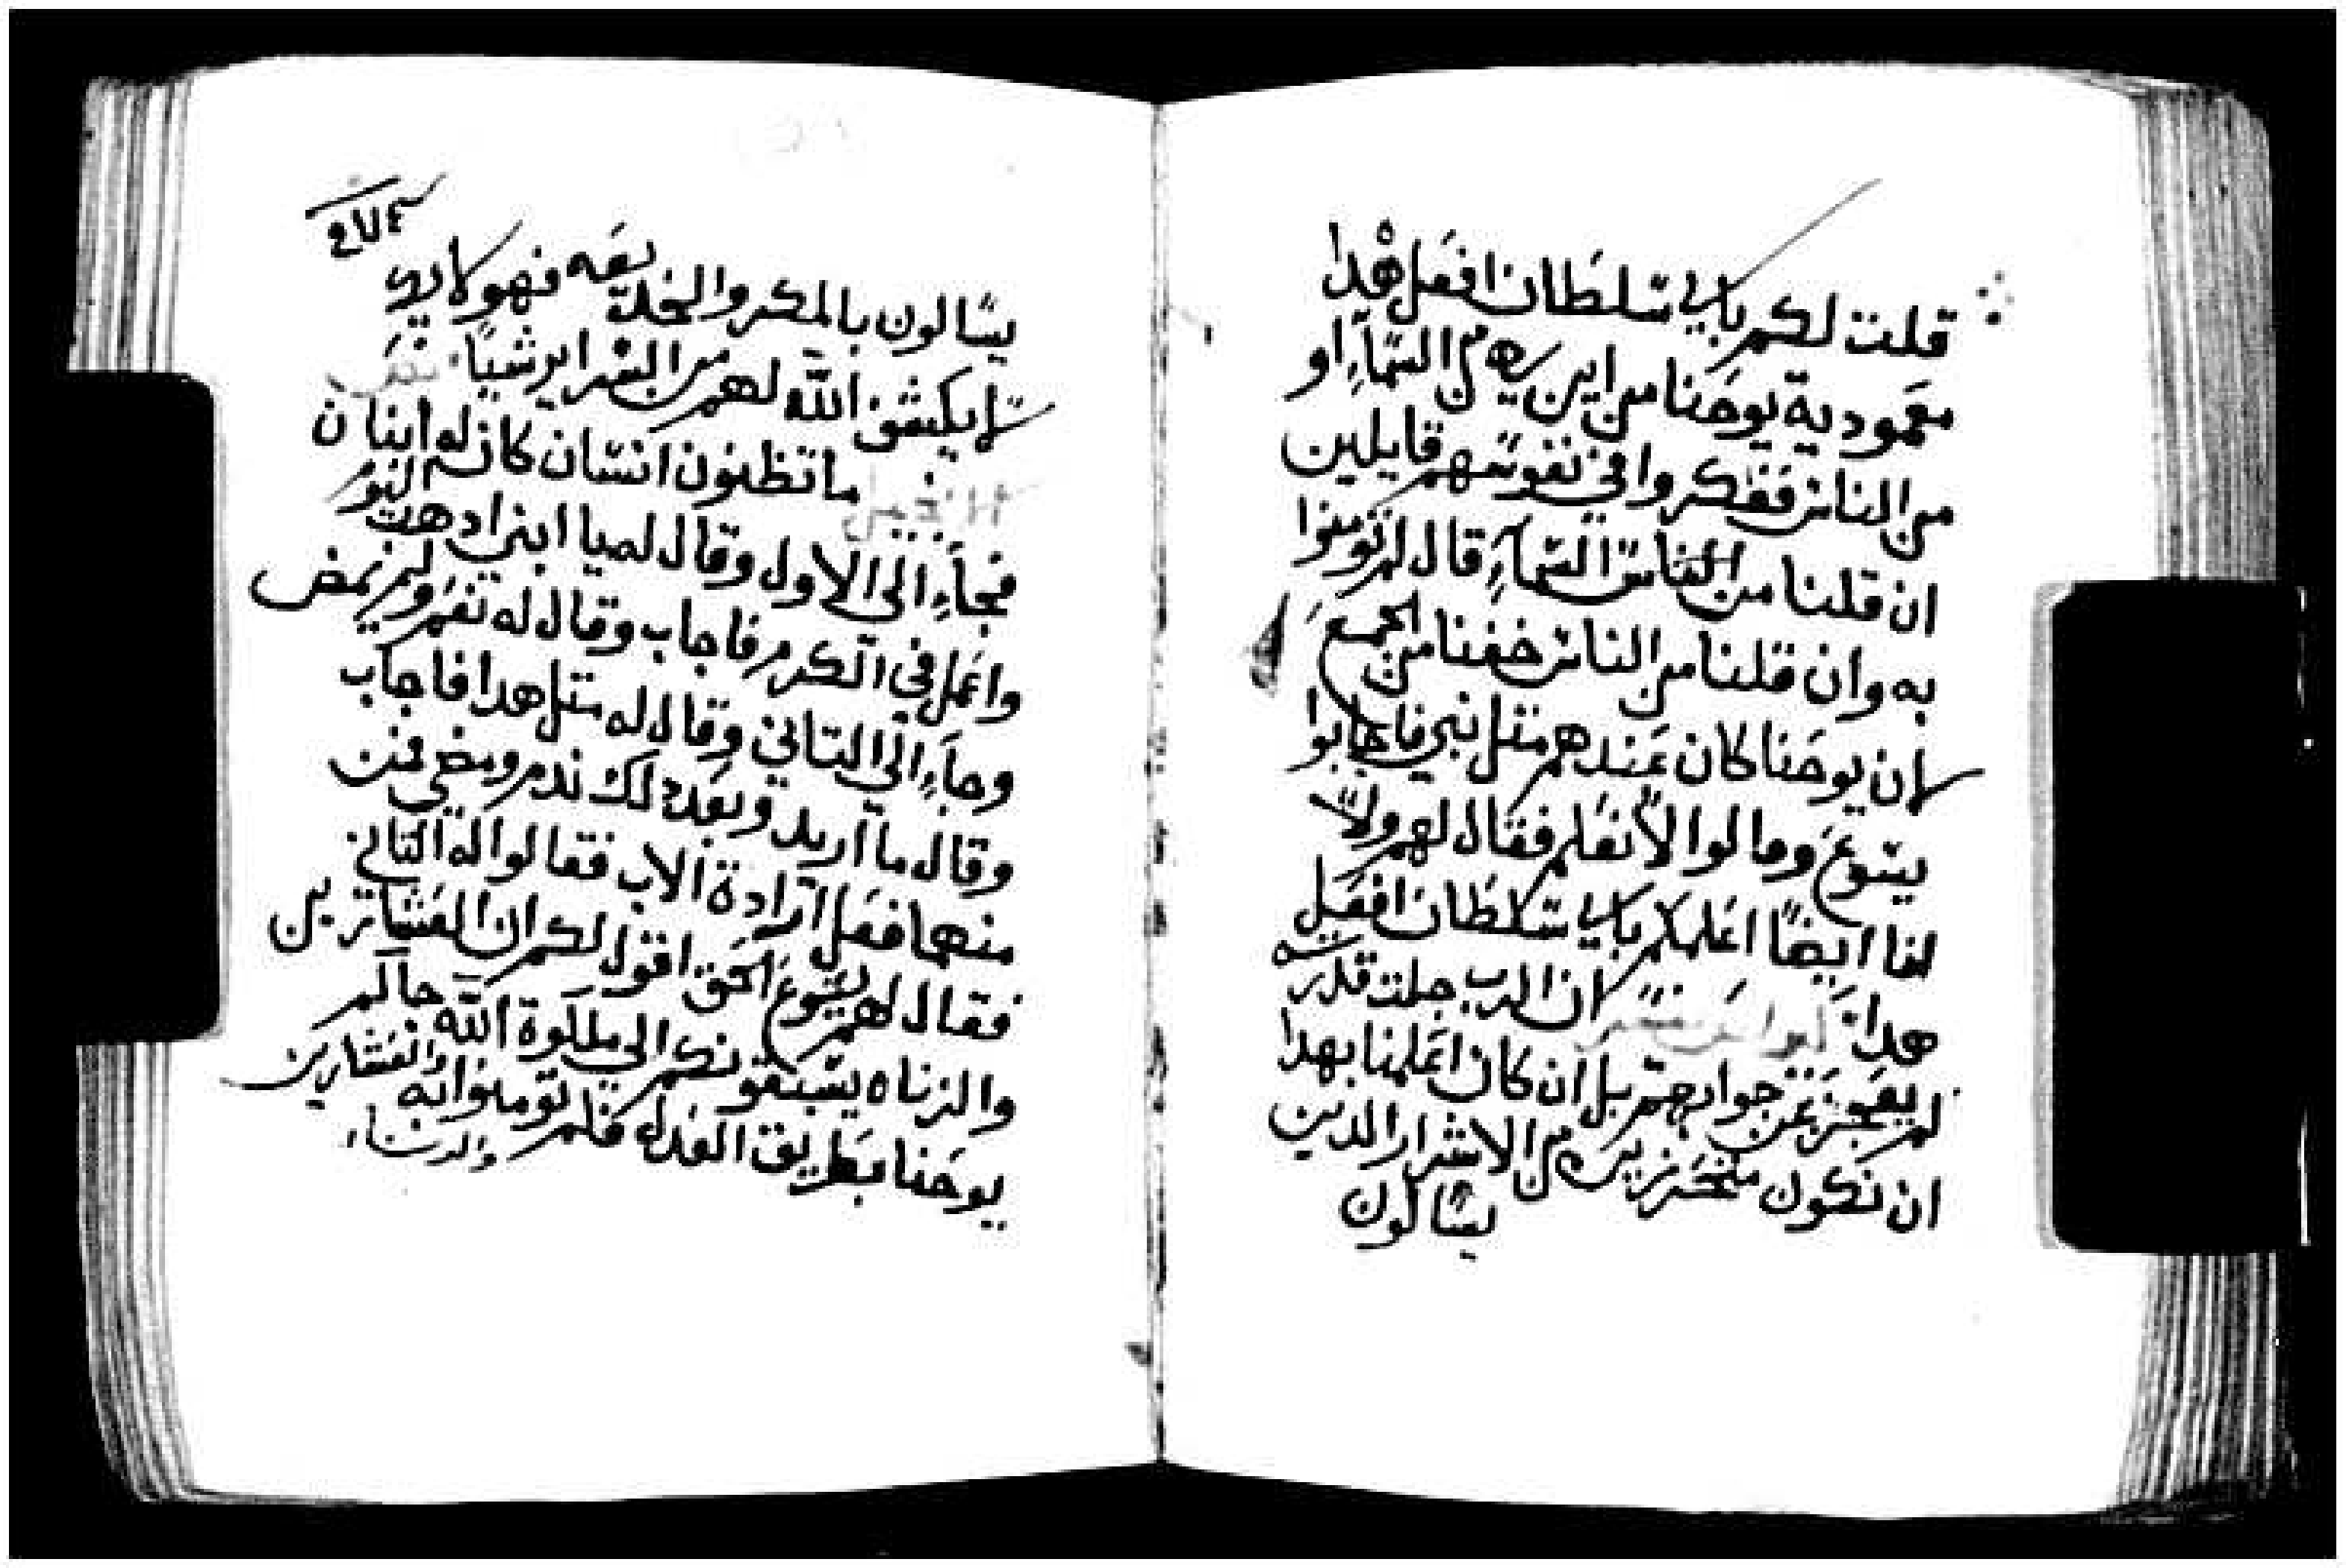 قلت لكم باي سلطان افعل هدا
معمودية يوحنا من اين هي من السماءِ او
من الناس ففكروا في نفوسهم قايلين
ان قلنا من السماءِ قال لم تومنوا
به وان قلنا من الناس خفنا من الجمع
لان يوحنا كان عندهم متل نبي فاجابوا
يسوع وقالوا لا نعلم فقال لهم ولا
انا ايضًا اعلمكم باي سلطان افعل
هدا لان الرب جلت قدرته
لم يعجز عن جوابهم بل ان كان اعلمنا بهدا
ان نكون متحرزين من الاشرار الدين
يسالون
يسالون بالمكر والخديعه فهولاي
لا يكشف الله لهم من السراير شيًا
ما تظنون انسان كان له ابنان
فجاءِ الى الاول وقال له يا ابني ادهب اليوم
واعمل في الكرم فاجاب وقال له نعم ولم يمض
وجاءِ الى التاني وقال له متل هدا فاجاب
وقال ما اريد وبعد دلك ندم ومضى فمن
منهما فعل ارادة الاب فقالوا له التاني
فقال لهم يسوع الحق اقول لكم ان العشارين
والزناه يسبقونكم الى ملكوة الله جاكم
يوحنا بطريق العدل فلم تومنوا به والعشارين
والزناه